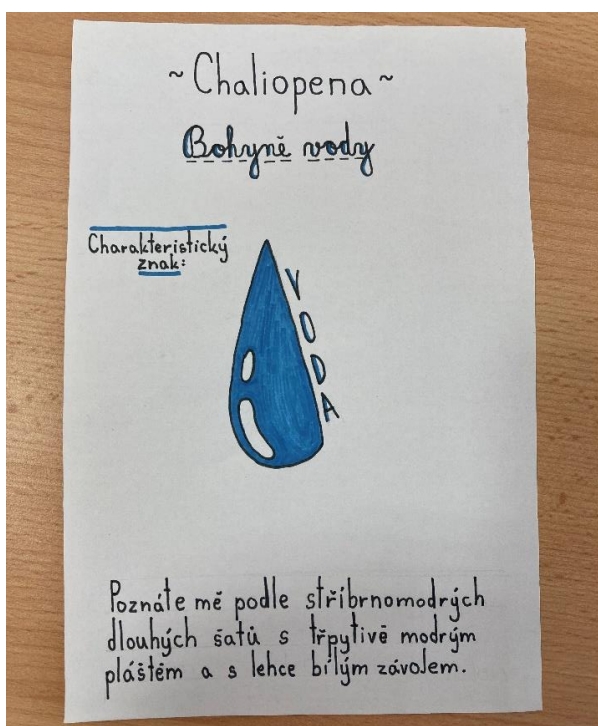 ~Chaliopena~
Bohyně vody
Charakteristický
znak:
VODA
Poznáte mě podle stříbrnomodrých
dlouhých šatů s třpytivě modrým
pláštěm a s lehce bílým závolem.